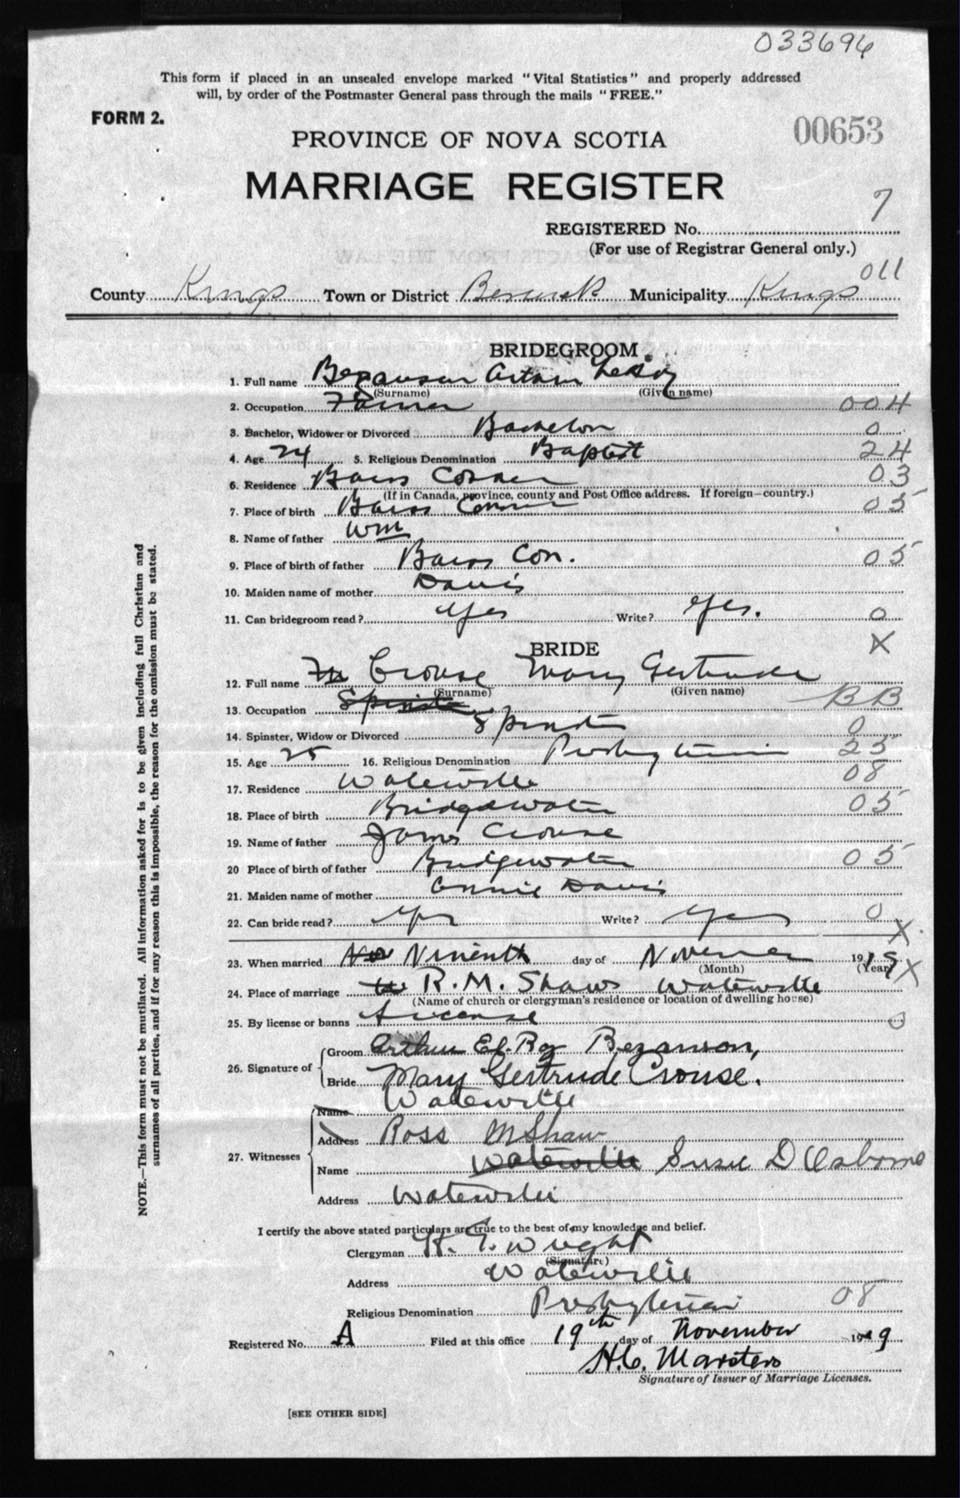 033696
This form if placed in an unsealed envelope marked "Vital Statistics" and properly addressed
will, by order of the Postmaster General pass through the mails "FREE."
FORM 2.
00653
PROVINCE OF NOVA SCOTIA
MARRIAGE REGISTER
REGISTERED No. 7
(For use of Registrar General only.)
011
County Kings Town or District Berwick Municipality Kings
BRIDEGROOM.
1. Full name Bezanson
(Surname) (Given name)
2. Occupation Farmer 004
3. Bachelor, Widower or Divorced Bachelor 0
4. Age 24 5. Religious Denomination Baptist 24
6. Residence Corner 03
(If in Canada, province, county and Post Office address. If foreign—country.)
7. Place of birth 05
8. Name of father Wm
9. Place of birth of father Cor. 05
10. Maiden name of mother Davis
11. Can bridegroom read? Yes Write? Yes. 0
X
BRIDE
12. Full name Crouse Mary Gertrude
(Surname) (Given name)
13. Occupation BB
14. Spinster, Widow or Divorced Spinster 0
15. Age 25 16. Religious Denomination Presbyterian 25
17. Residence Waterville 08
18. Place of birth Bridgewater 05
19. Name of father James Crouse
20 Place of birth of father Bridgewater 05
21. Maiden name of mother Annie Davis
22. Can bride read? Yes Write? Yes 0
X
23. When married day of November 1919
(Month) (Year) X
24. Place of marriage R. M. Shaws Waterville
(Name of church or clergyman's residence or location of dwelling house)
25. By license or banns License 0
26. Signature of
Groom Arthur Bezanson,
Bride Mary Gertrude Crouse.
Waterville
27. Witnesses
Name
Address Ross M Shaw
Name Waterville Susie D Osborne
Address Waterville
I certify the above stated particulars are true to the best of my knowledge and belief.
Clergyman Wright
(Signature)
Address Waterville
Religious Denomination Presbyterian 08
Registered No. A Filed at this office 19th day of November 1919
H. C. Marsters
Signature of Issuer of Marriage Licenses.
[SEE OTHER SIDE]
NOTE.—This form must not be mutilated. All information asked for is to be given including full Christian and
surnames of all parties, and if for any reason this is impossible, the reason for the omission must be stated.